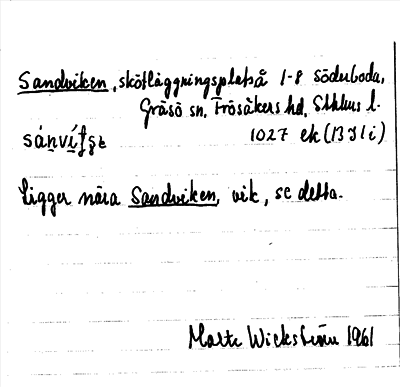 Sandviken, skötläggningsplats å 1-8 Söderboda,
Gräsö sn, Frösåkers hd, Sthlms l.
1027 ek (13 I 1 i)
Ligger nära Sandviken, vik, se detta.
Märta Wickström 1961